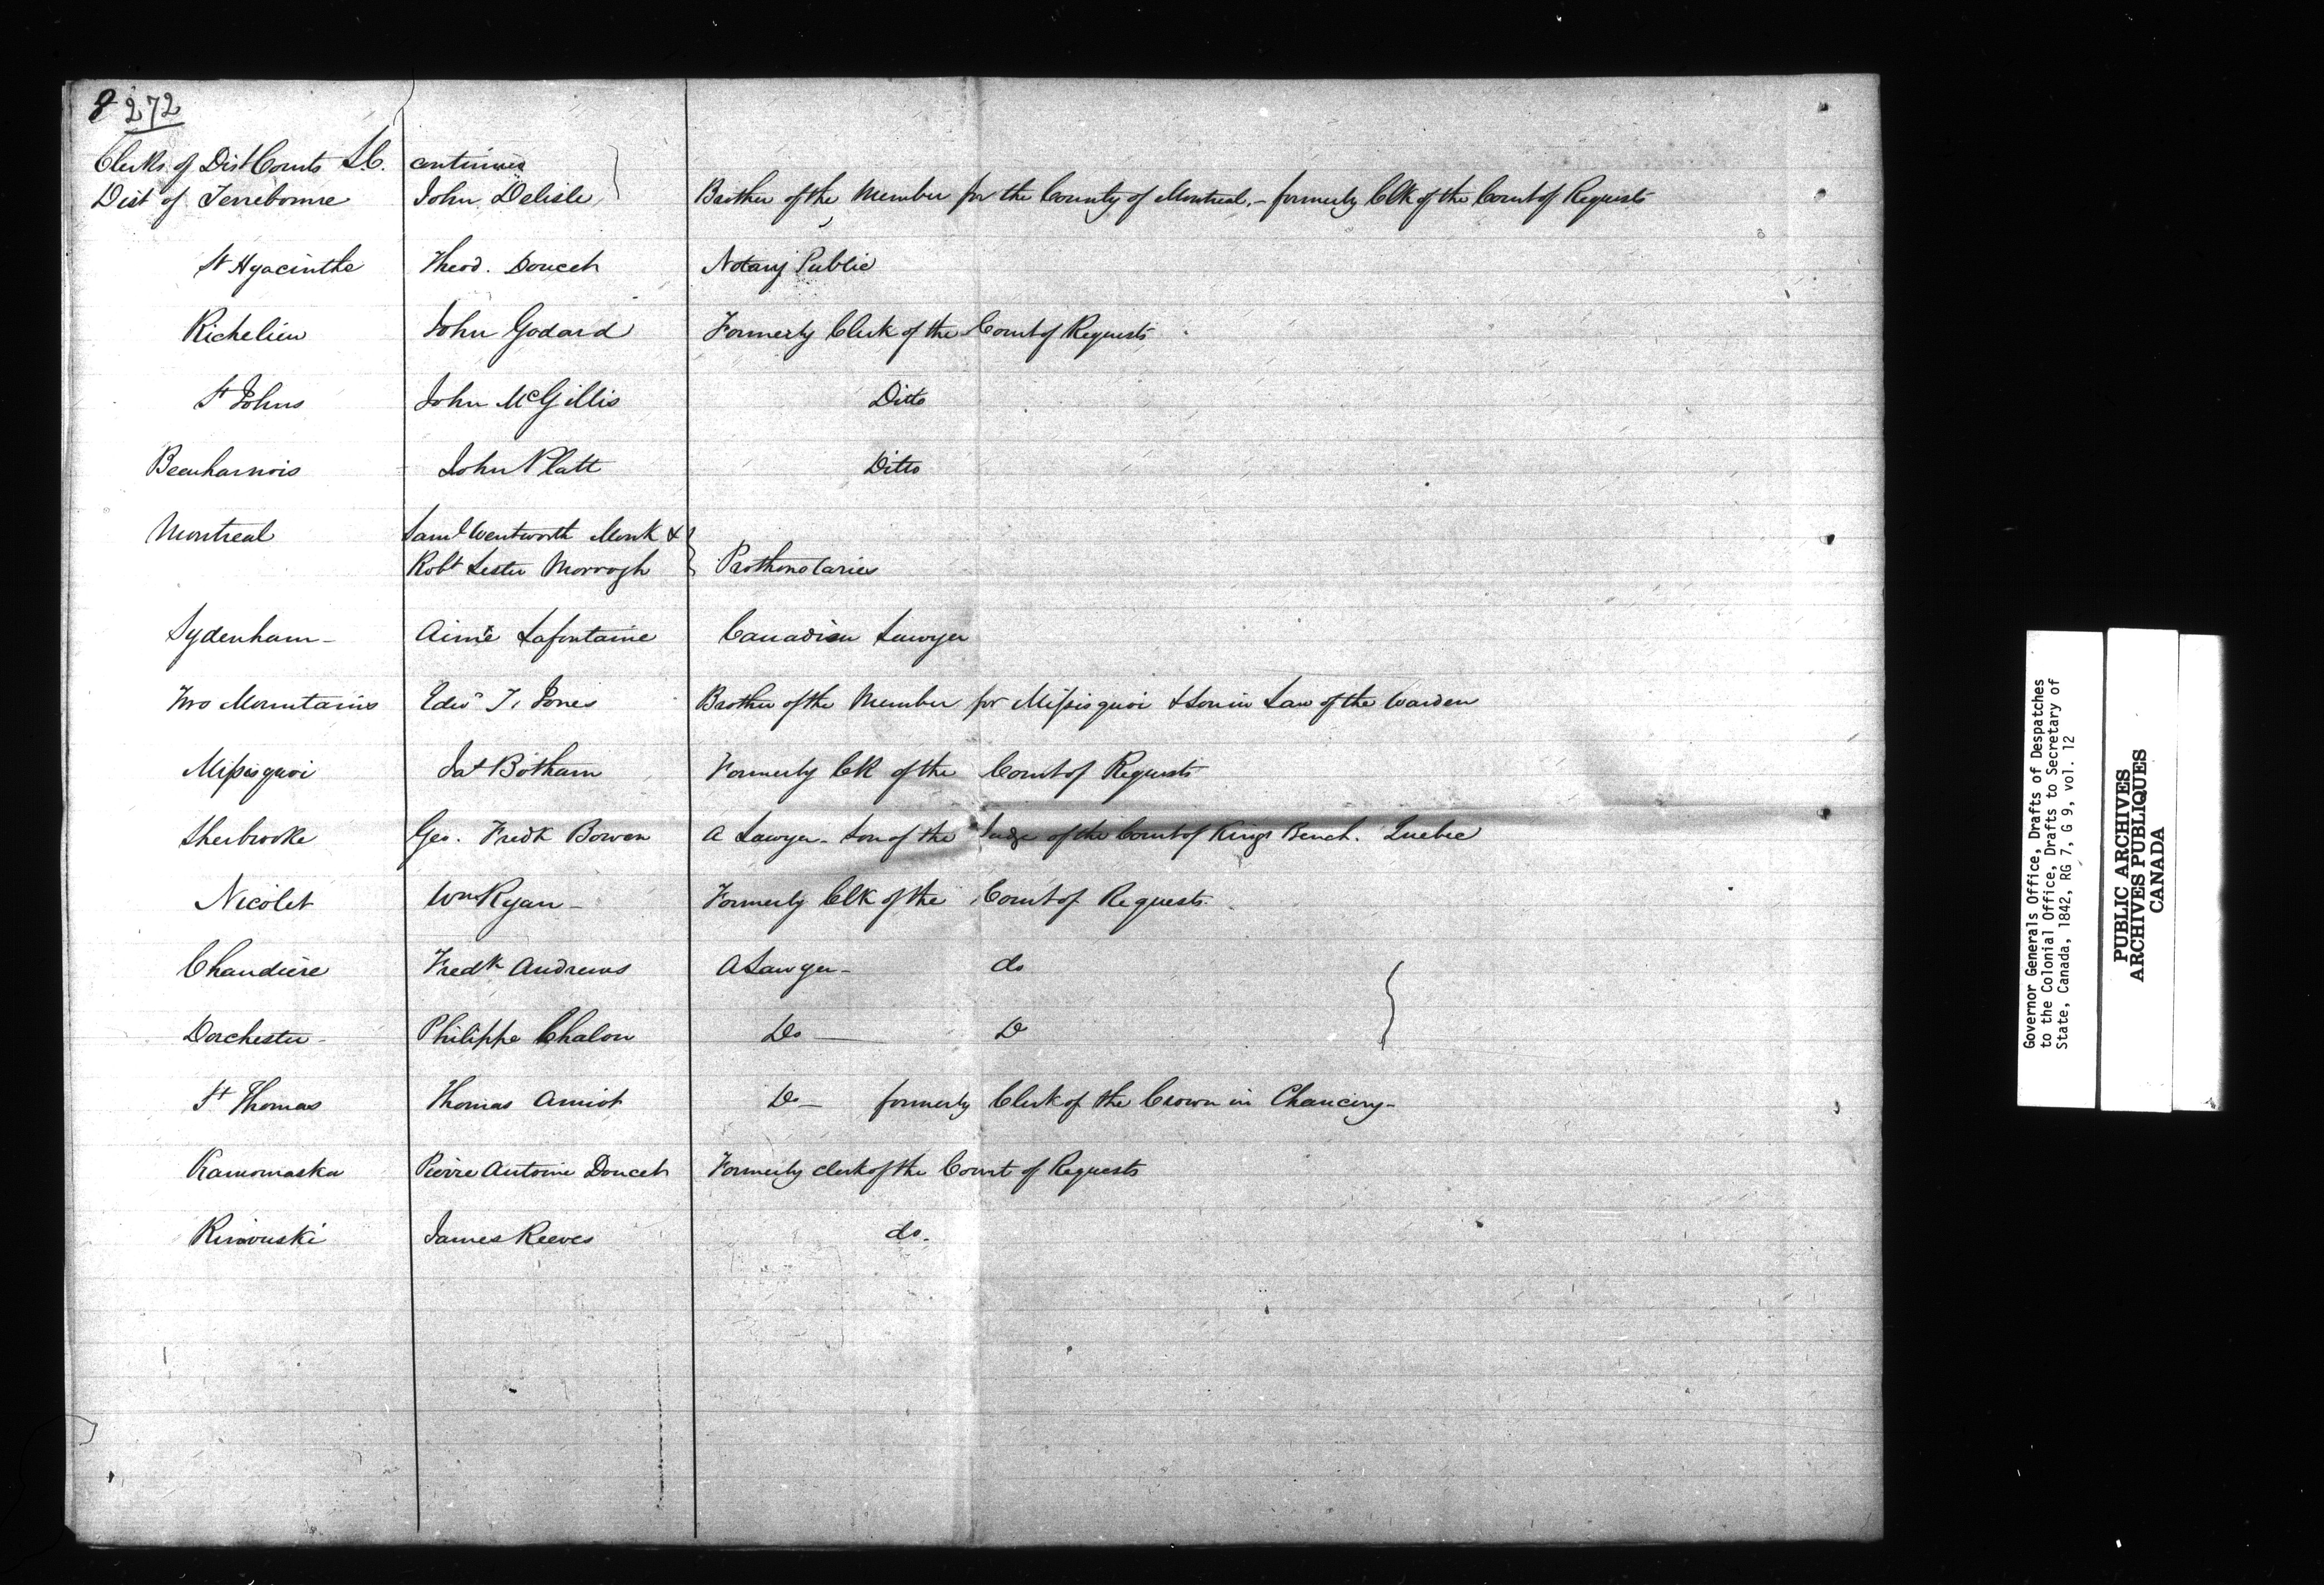 8 272
Clerks of Dist Courts L.C. continued
Dist of Terrebonne John Delisle Brother of the Member for the County of Montreal. - formerly Clk of the Court of Requests
St Hyacinthe Theod. Doucet Notary Public
Richelieu John Godard Formerly Clerk of the Court of Requests
St Johns John McGillis Ditto
Beauharnois John Platt Ditto
Montreal Saml Wentworth Monk &
Robt Lester Morrogh Prothonotaries
Sydenham - Aimé Lafontaine Canadian Lawyer
Two Mountains Edwd T. Jones Brother of the Member for Missisquoi & Son in Law of the Warden
Missisquoi Jas Botham Formerly Clk of the Court of Requests
Sherbrooke Geo. Fredk Bowen A Lawyer - Son of the Judge of the Court of Kings Bench. Quebec
Nicolet Wm Ryan - Formerly Clk of the Court of Requests.
Chaudière Fredk Andrews A Lawyer - do
Dorchester - Philippe Chalou Do - D
St Thomas Thomas Amiot Do - formerly Clerk of the Crown in Chancery -
Kamouraska Pierre Antoine Doucet Formerly clerk of the Court of Requests
Rimouski James Reeves do.
Governor Generals Office, Drafts of Despatches
to the Colonial Office, Drafts to Secretary of
State, Canada, 1842, RG 7, G 9, vol. 12
PUBLIC ARCHIVES
ARCHIVES PUBLIQUES
CANADA